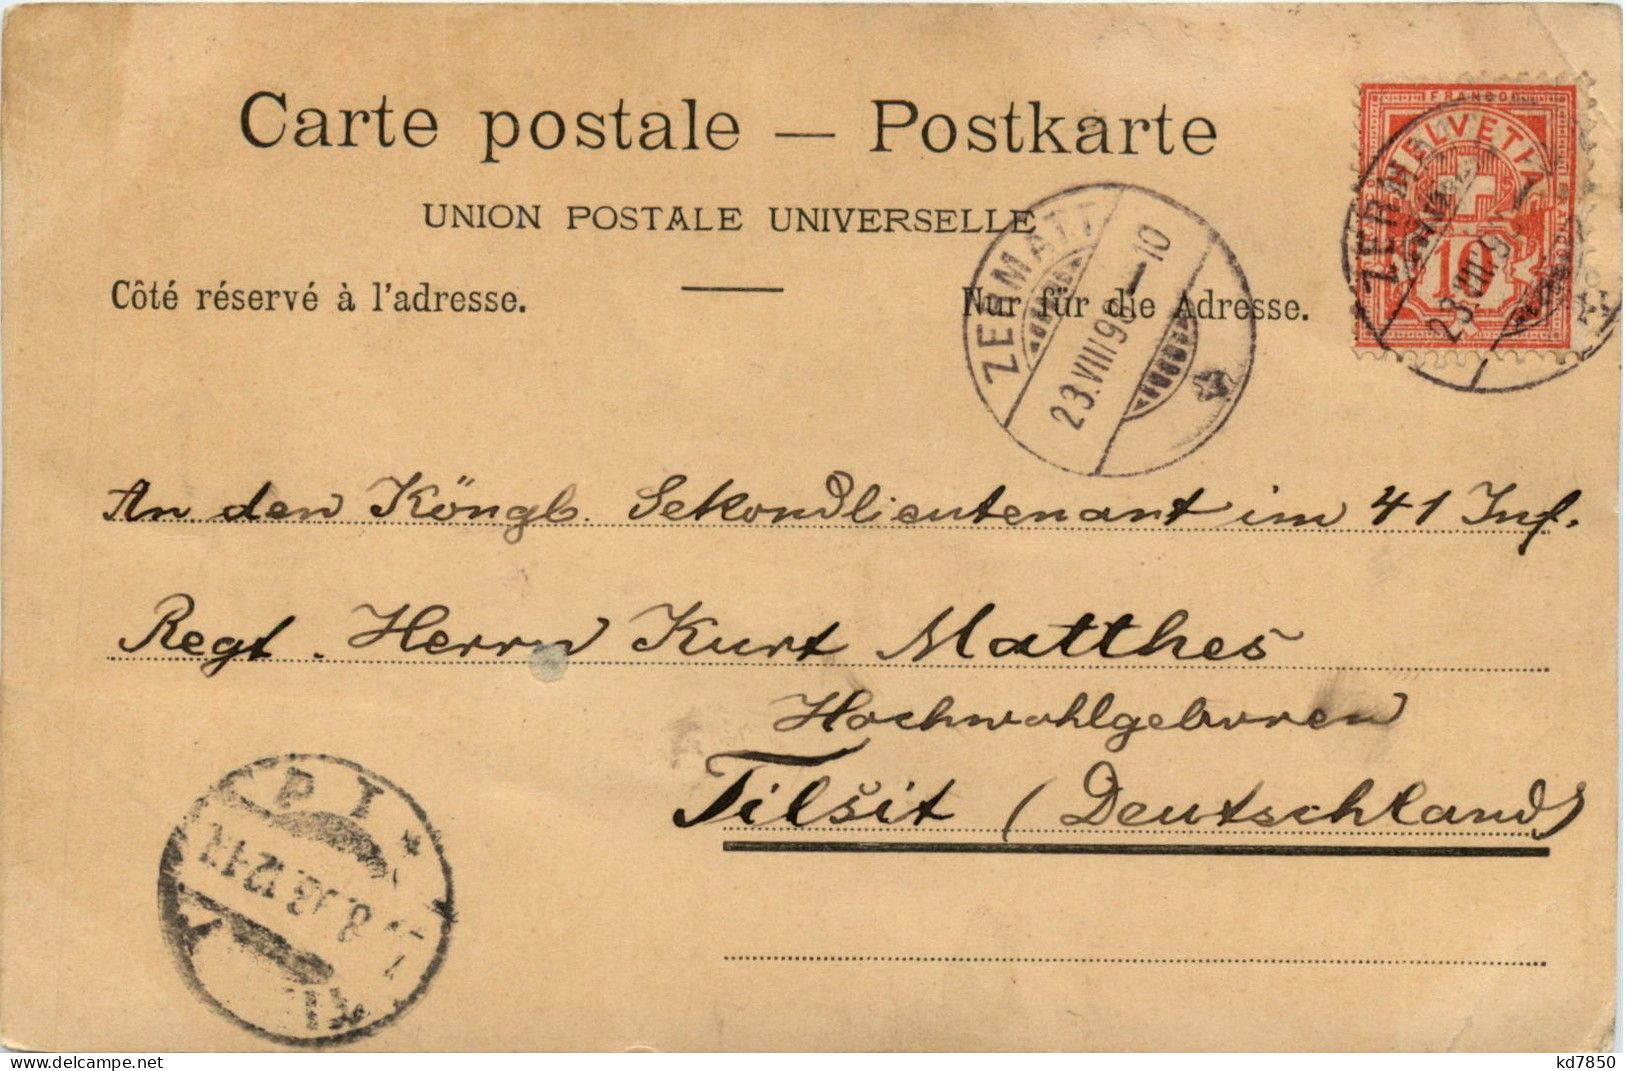 Carte postale — Postkarte
UNION POSTALE UNIVERSELLE
Côté réservé à l'adresse.
Nur für die Adresse.
FRANCO
HELVETIA
10
ZERMATT
23.VIII.9
ZERMATT
23.VIII.98 — 10
An den Köngl. Sekondlieutenant im 41 Inf.
Regt. Herrn Kurt Matthes
Hochwohlgeboren
Tilsit (Deutschland)
delcampe.net
kd7850